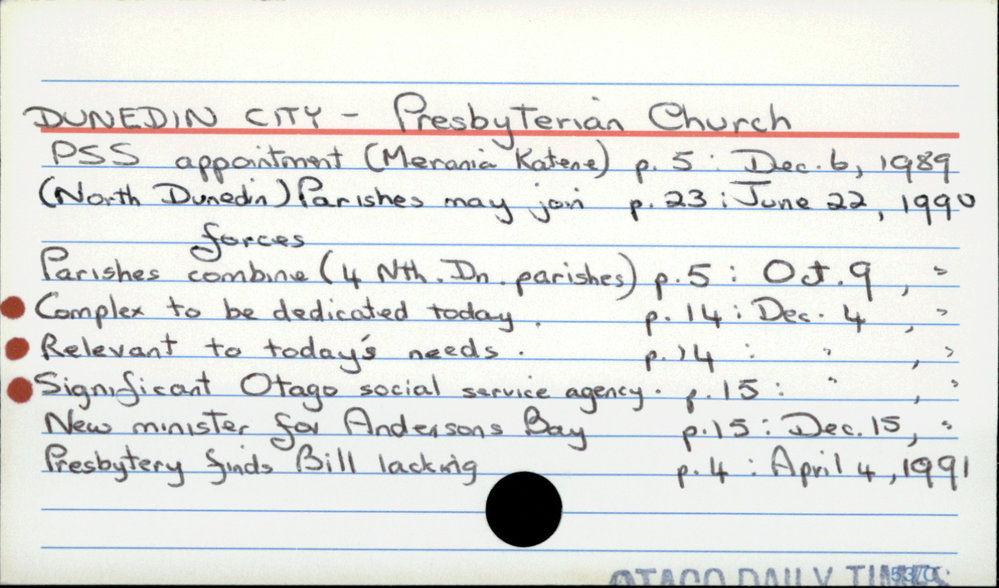 DUNEDIN CITY - Presbyterian Church
PSS appointment (Merania Katene) p. 5 : Dec. 6, 1989
(North Dunedin) Parishes may join p. 23 : June 22, 1990
forces
Parishes combine (4 Nth. Dn. parishes) p. 5 : Oct. 9 , "
Complex to be dedicated today . p. 14 : Dec. 4 , "
Relevant to today's needs . p. 14 : " , "
Significant Otago social service agency . p. 15 : " , "
New minister for Andersons Bay p. 15 : Dec. 15, "
Presbytery finds Bill lacking p. 4 : April 4, 1991
OTAGO DAILY TIMES